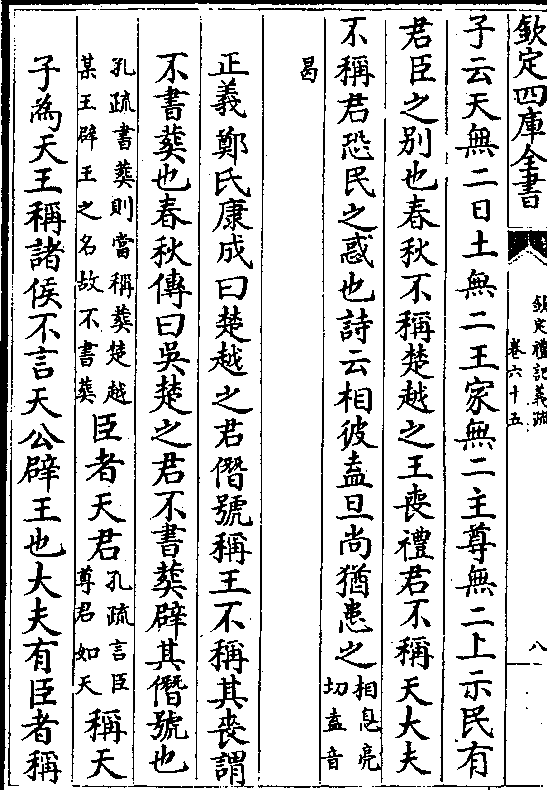 欽定四庫全書
欽定禮記義疏
卷六十五
八
子云天無二日土無二王家無二主尊無二上示民有
君臣之别也春秋不稱楚越之王喪禮君不稱天大夫
不稱君恐民之惑也詩云相彼盍旦尚猶患之相息亮切盍音
曷
正義鄭氏康成曰楚越之君僭號稱王不稱其喪謂
不書葬也春秋傳曰吳楚之君不書葬辟其僭號也
孔疏書葬則當稱葬楚越某王辟王之名故不書葬臣者天君孔疏言臣尊君如天稱天
子為天王稱諸侯不言天公辟王也大夫有臣者稱